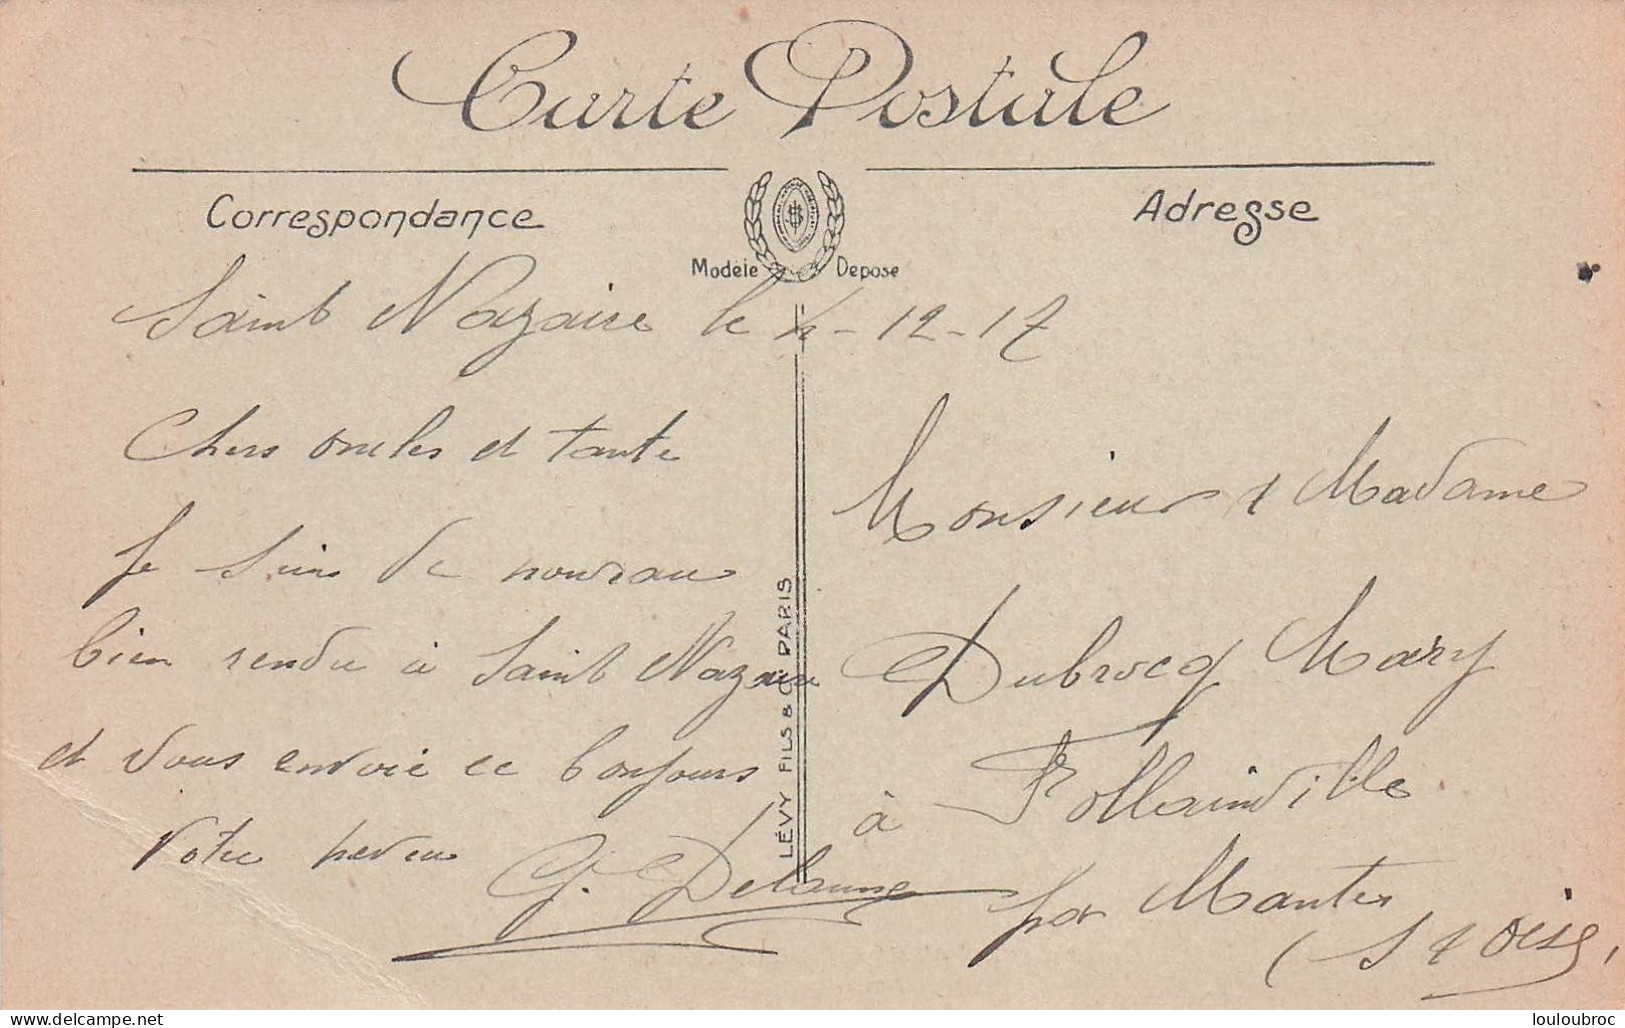 Carte Postale
Correspondance
Adresse
Modèle Déposé
Saint Nazaire le 4-12-17
Chers oncles et tante
Je suis de nouveau
bien rendu à Saint Nazaire
et vous envoie ce bonjours
Votre neveu
G. Delaunay
LÉVY FILS & Cie PARIS
Monsieur & Madame
Dubrocq Mary
à Follainville
par Mantes
(S & Oise,
delcampe.net
louloubroc